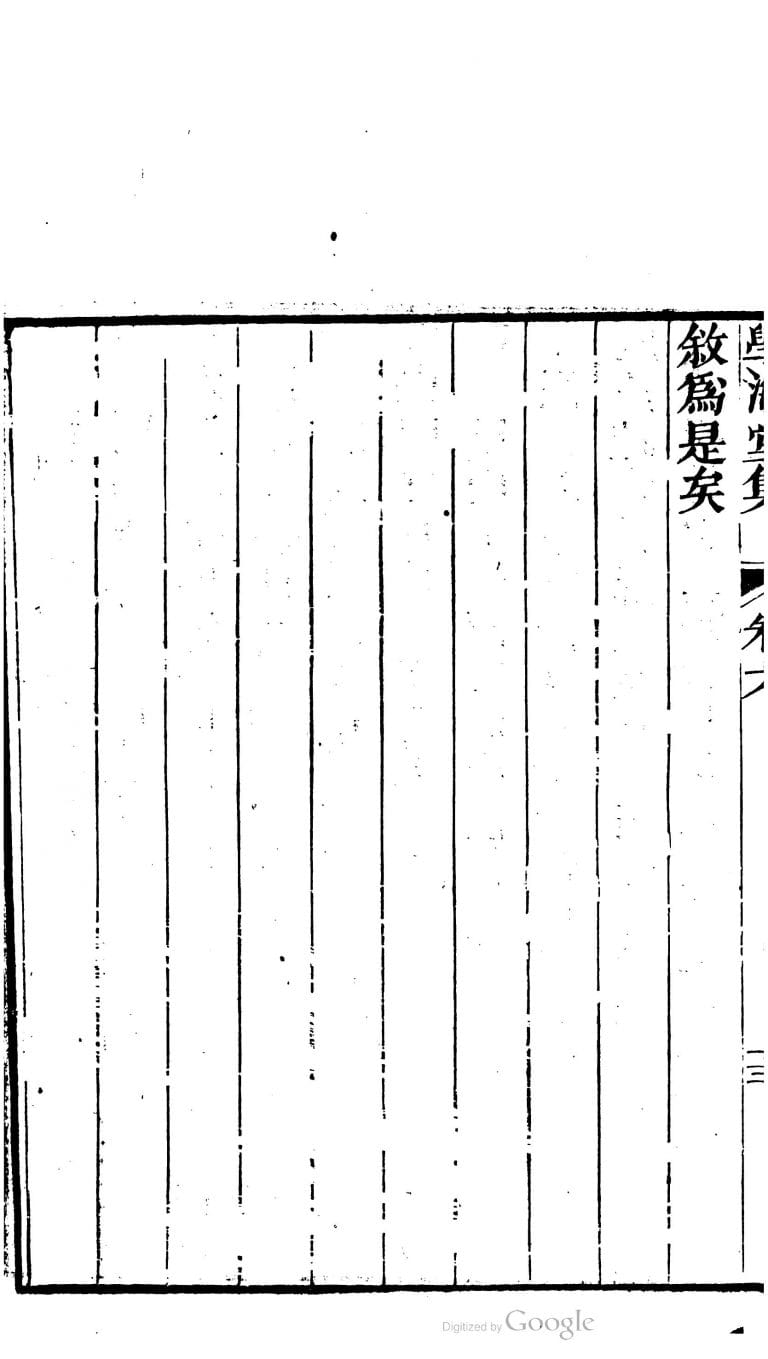 學海堂集 卷六
敘爲是矣
Digitized by Google